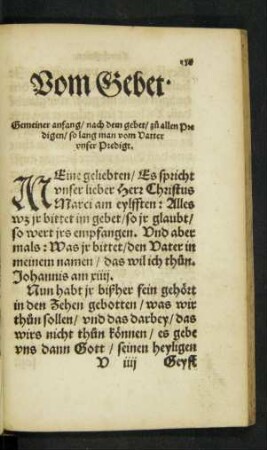 Vom Gebet.
Gemeiner anfang/ nach dem gebet/ zů allen Pre
digen/ so lang man vom Vatter
vnser Predigt.
MEine geliebten/ Es spricht
vnser lieber Herr Christus
Marci am eylfften: Alles
wz jr bittet im gebet/ so jr glaubt/
so wert jrs empfangen. Vnd aber
mals: Was jr bittet/ den Vater in
meinem namen/ das wil ich thůn.
Johannis am xiiij.
Nun habt jr bißher fein gehört
in den Zehen gebotten/ was wir
thůn sollen/ vnd das darbey/ das
wirs nicht thůn können/ es gebe
vns dann Gott/ seinen heyligen
V iiij Geyst